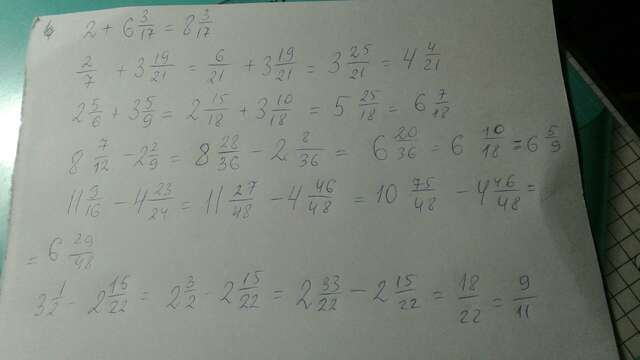 2 + 6 3/17 = 8 3/17
2/7 + 3 19/21 = 6/21 + 3 19/21 = 3 25/21 = 4 4/21
2 5/6 + 3 5/9 = 2 15/18 + 3 10/18 = 5 25/18 = 6 7/18
8 7/12 - 2 2/9 = 8 28/36 - 2 8/36 = 6 20/36 = 6 10/18 = 6 5/9
11 9/16 - 4 23/24 = 11 27/48 - 4 46/48 = 10 75/48 - 4 46/48 =
= 6 29/48
3 1/2 - 2 15/22 = 2 3/2 - 2 15/22 = 2 33/22 - 2 15/22 = 18/22 = 9/11